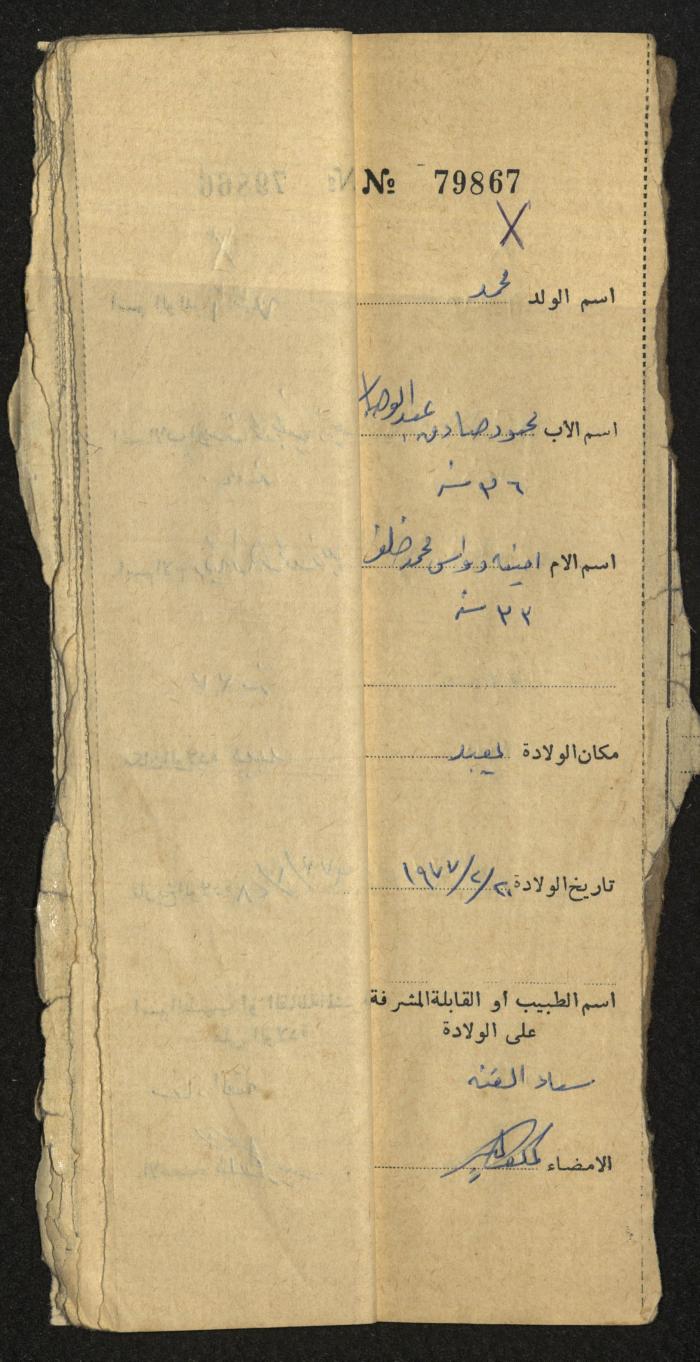 № 79867
X
اسم الولد محمد
اسم الاب محمود صادق عبد الوهاب
٣٦ سنه
اسم الام امينه محمد خلف
٣٣ سنه
مكان الولادة
تاريخ الولادة ٢٠/٢/١٩٧٧
اسم الطبيب أو القابلة المشرفة
على الولادة
سعاد
الامضاء